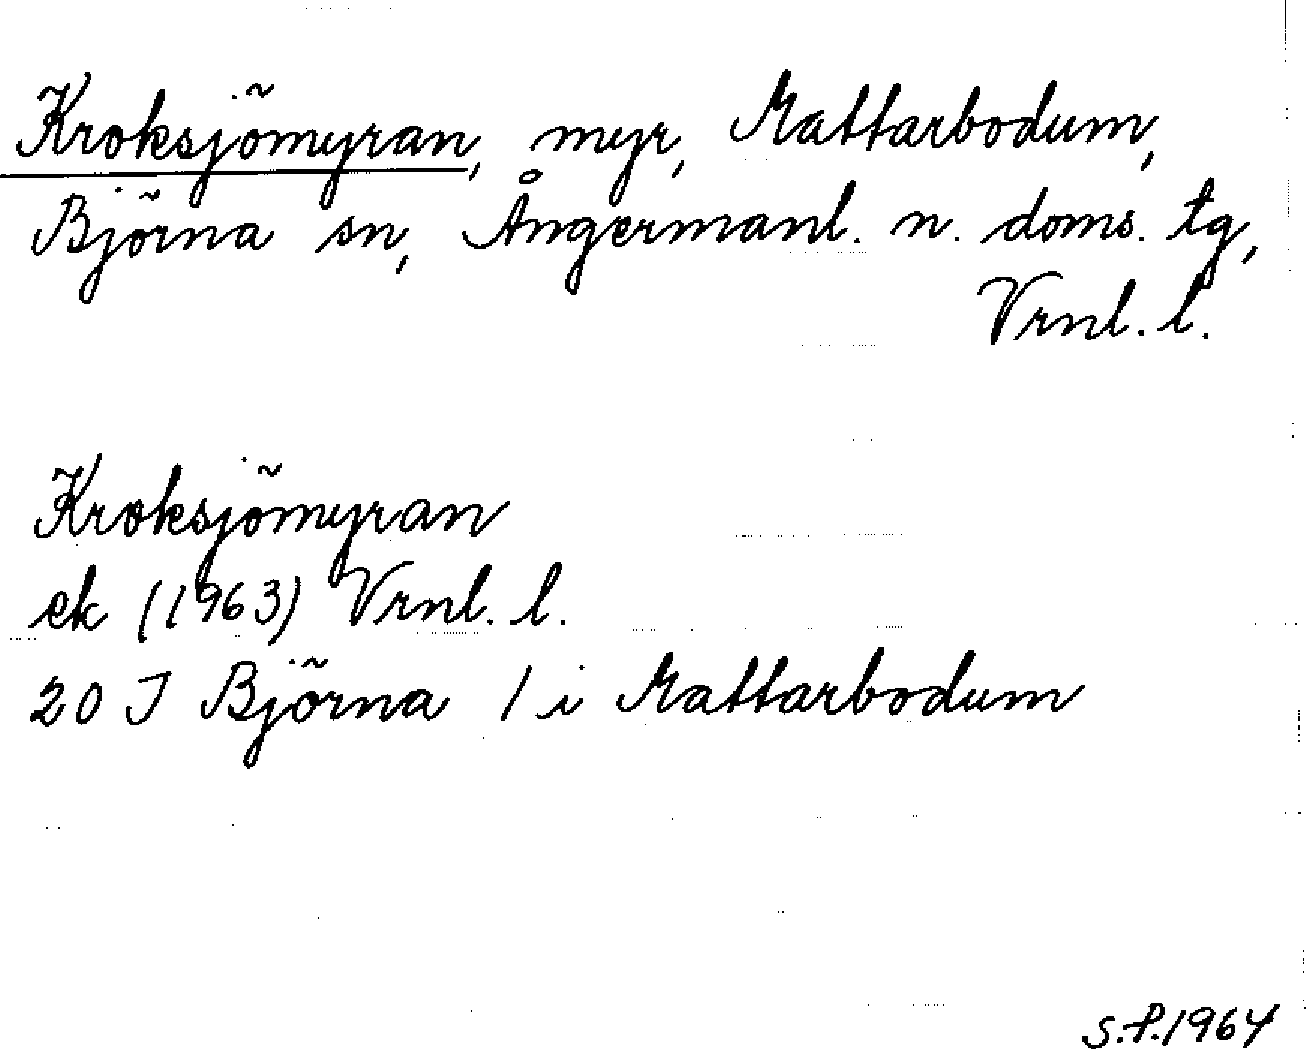 Kroksjömyran, myr, Mattarbodum,
Björna sn, Ångermanl. n. doms. tg,
Vrnl. l.
Kroksjömyran
ek (1963) Vrnl. l.
20 J Björna 1 i Mattarbodum
S.P.1964